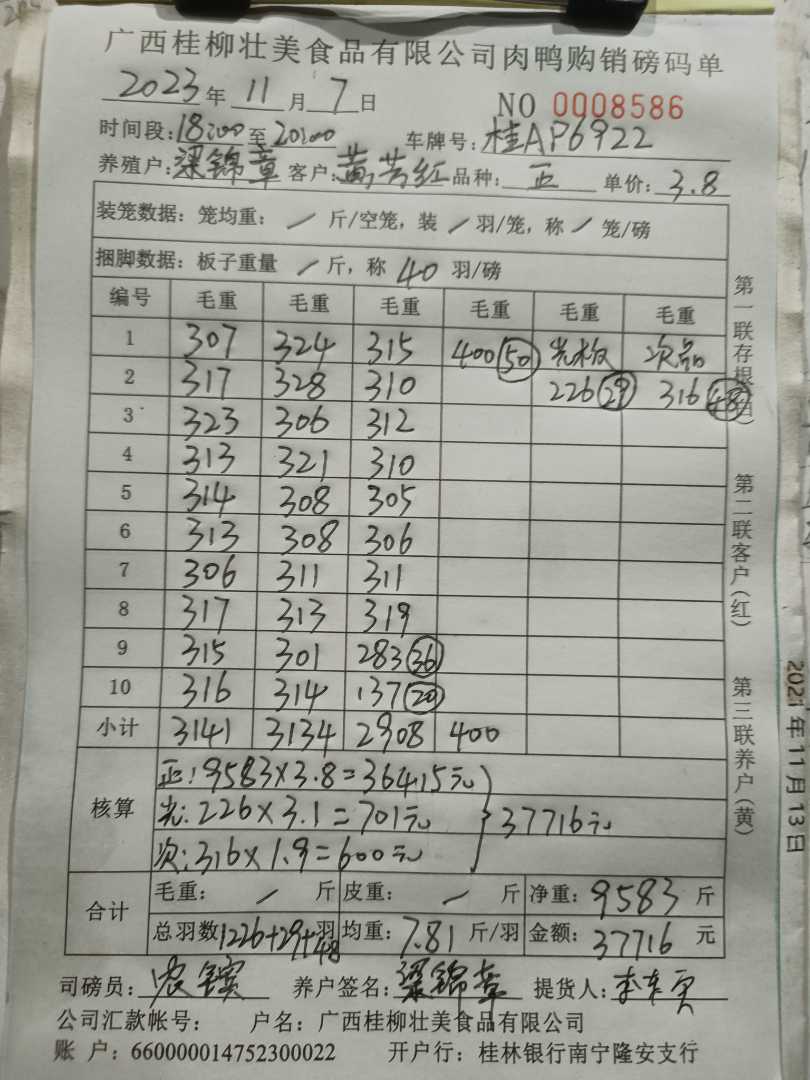 广西桂柳壮美食品有限公司肉鸭购销磅码单
2023年11月7日 NO 0008586
时间段:18:00至20:00 车牌号:桂AP6922
养殖户:梁锦章 客户:黄芳红 品种:正 单价:3.8
装笼数据:笼均重: / 斤/空笼,装 / 羽/笼,称 / 笼/磅
捆脚数据:板子重量 / 斤,称 40 羽/磅
编号 毛重 毛重 毛重 毛重 毛重 毛重
1 307 324 315 400 50 光板 次品
2 317 328 310 226 29 316 48
3 323 306 312
4 313 321 310
5 314 308 305
6 313 308 306
7 306 311 311
8 317 313 319
9 315 301 283 36
10 316 314 137 20
小计 3141 3134 2908 400
核算
正:9583×3.8=36415元
光:226×3.1=701元
次:316×1.9=600元
37716元
合计
毛重: / 斤 皮重: / 斤 净重:9583 斤
总羽数1226+29+48羽 均重:7.81 斤/羽 金额:37716 元
司磅员: 养户签名:梁锦章 提货人:
公司汇款帐号: 户名:广西桂柳壮美食品有限公司
账 户:660000014752300022 开户行:桂林银行南宁隆安支行
第一联存根(白)
第二联客户(红)
第三联养户(黄)
2021年11月13日